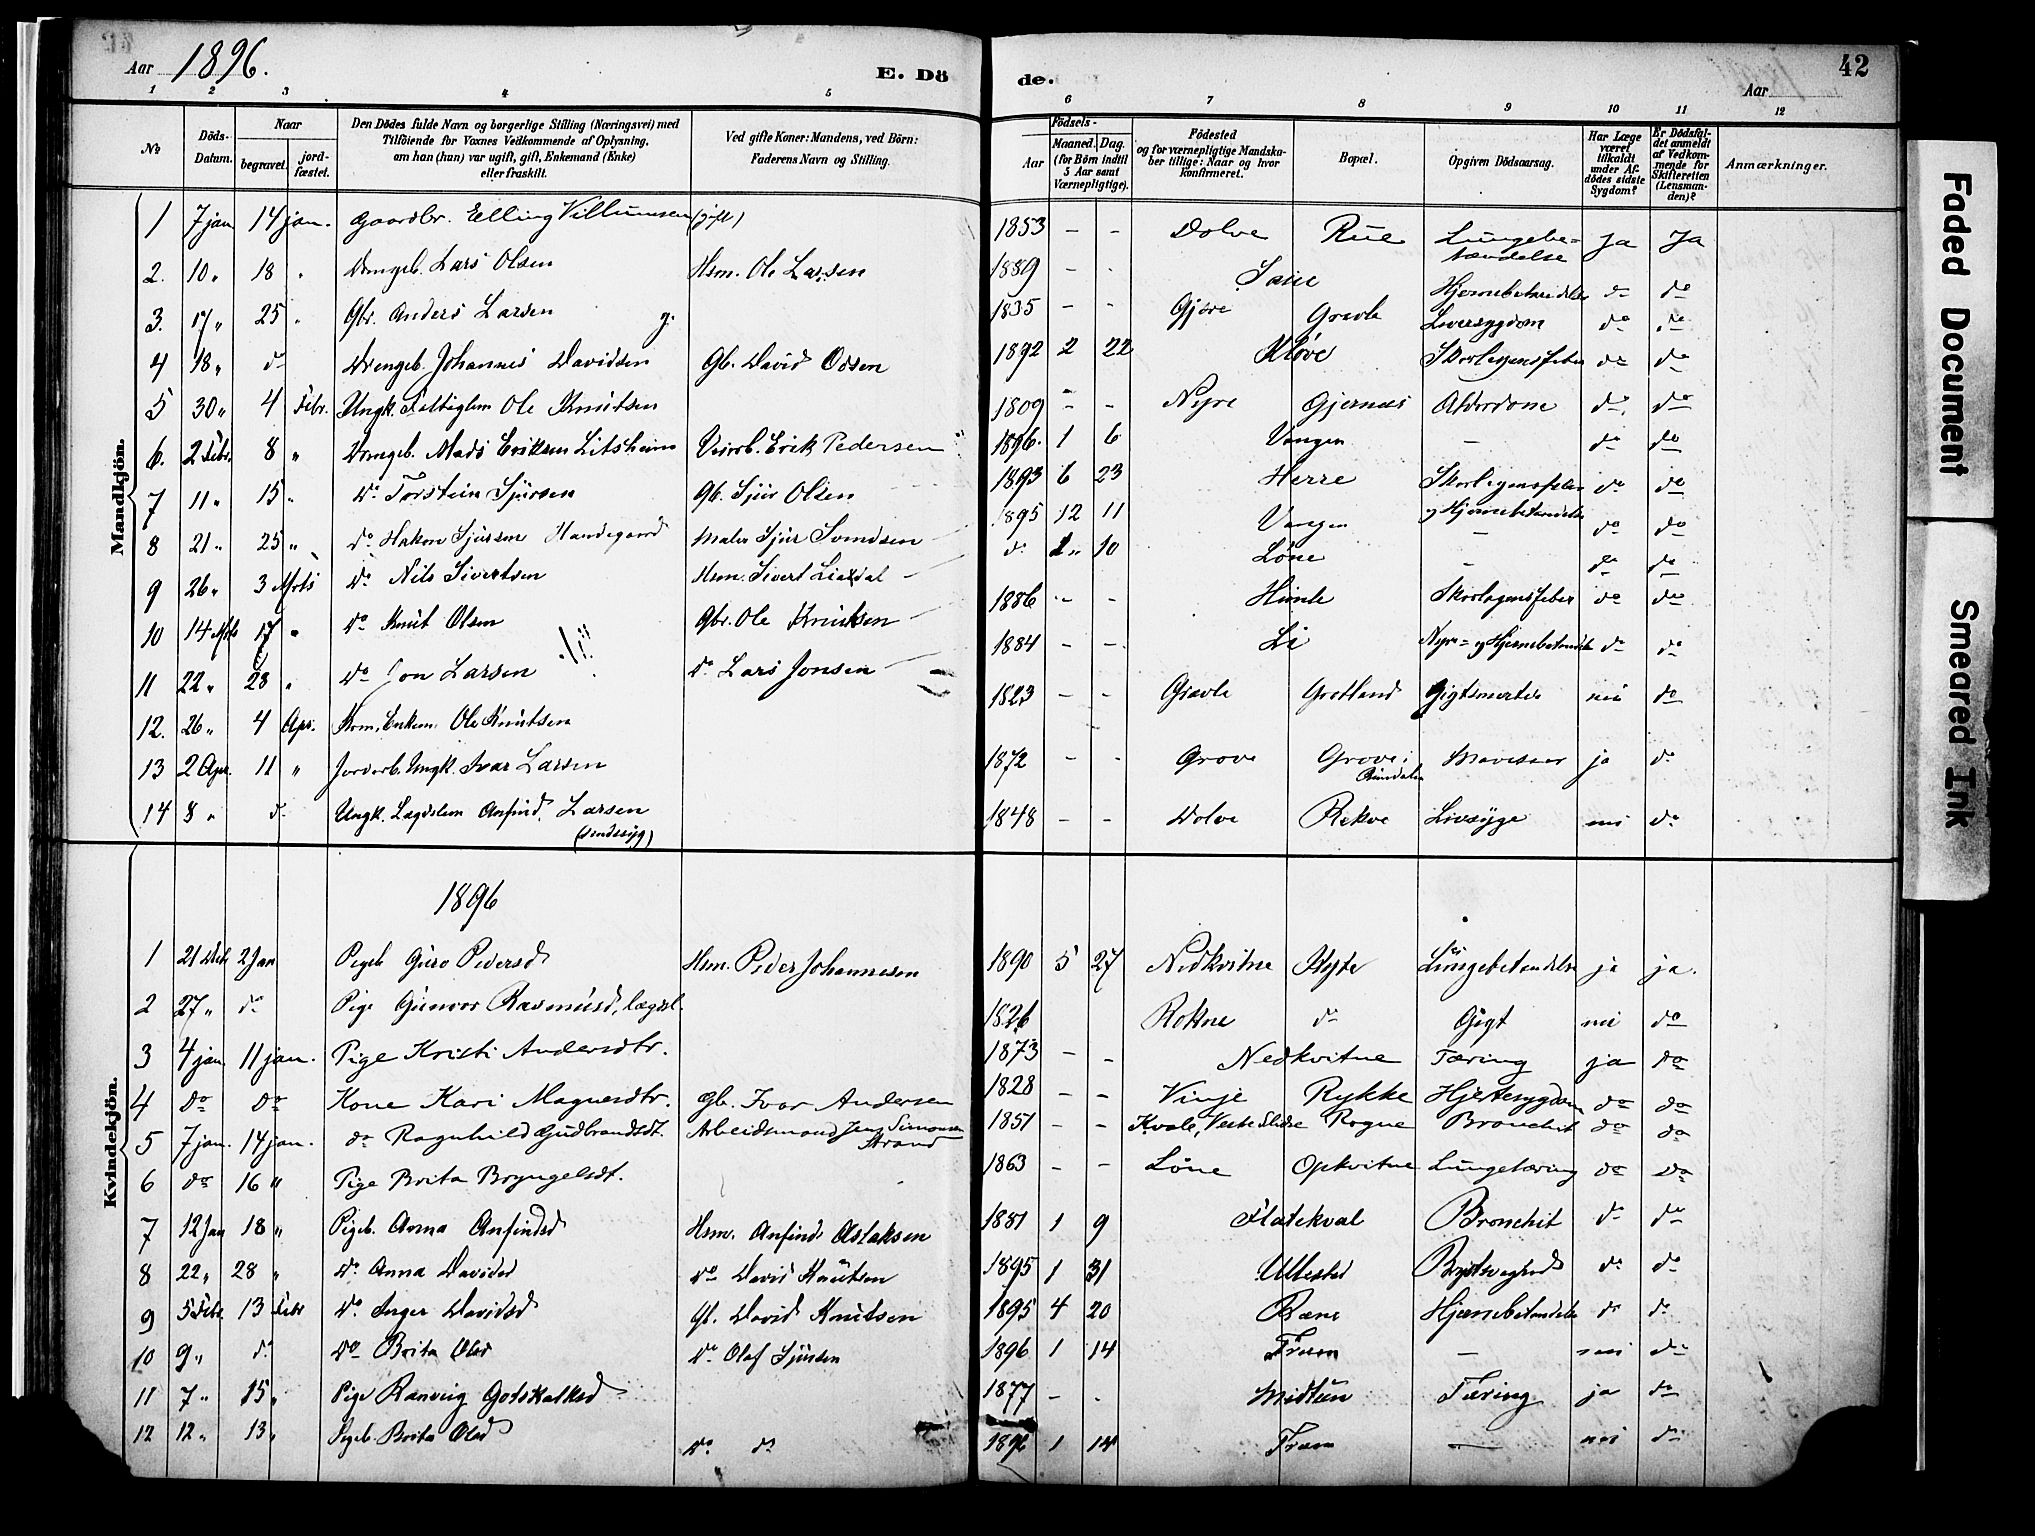 Aar 1896. E. Dö de. Aar 42
1 2 3 4 5 6 7 8 9 10 11 12
No
Döds-Datum.
Naar
begravet. jord-fæstet.
Den Dödes fulde Navn og borgerlige Stilling (Næringsvei) med
Tilföiende for Voxnes Vedkommende af Oplysning,
om han (hun) var ugift, gift, Enkemand (Enke)
eller fraskilt.
Ved gifte Koner: Mandens, ved Börn:
Faderens Navn og Stilling.
Födsels-
Aar Maaned. Dag.
(for Börn indtil
5 Aar samt
Værnepligtige).
Födested
og for værnepligtige Mandska-
ber tillige: Naar og hvor
konfirmeret.
Bopæl.
Opgiven Dödsaarsag.
Har Læge
været
tilkaldt
under Af-
dödes sidste
Sygdom?
Er Dödsfal-
det anmeldt
af Vedkom-
mende for
Skifteretten
(Lensman-
den)?
Anmærkninger.
Mandkjön.
1 7 jan 14 jan. Gaardbr. Elling Villumsen (gift) 1853 - - Dolve Rue Lungebe=tændelse Ja Ja
2. 10 " 18 " Drengeb. Lars Olsen Hsm. Ole Larsen 1889 - - Saue Hjernebetændelse do do
3. 17 " 25 " Gbr. Anders Larsen g. 1835 - - Gjøre Graule Leversygdom do do
4 18 " do Drengeb. Johannes Davidsen Gb. David Odsen 1892 2 22 Kløve Skarlagensfeber do do
5 30 " 4 Febr. Ungk. Fattiglem Ole Knutsen 1809 - - Nyre Gjernes Alderdom do do
6. 2 Febr. 8 " Drengeb. Mads Eriksen Litsheim Erik Pedersen 1896. 1 6 Vangen - do do
7 11 " 15 " do Torstein Sjursen Gb. Sjur Olsen 1893 6 23 Herre Skarlagensfeber og Hjernebetændelse do do
8 21 " 25 " do Hakon Sjursen Handegaard Maler Sjur Svendsen 1895 12 11 Vangen - do do
9 26 " 3 Mrts do Nils Sivertsen Hsm. Sivert Liadal do 1 " 10 Løne - do do
10 14 Mrts 17 " do Knut Olsen Gbr. Ole Knutsen 1886 - - Himle Skarlagensfeber do do
11 22 " 28 " do Jon Larsen do Lars Jonsen 1884 - - Li Nyre= og Hjernebetændelse do do
12. 26 " 4 Apr. Enkem. Ole Knutsen 1823 - - Gjavle Grotland Gigtsmerter nei do
13 2 Apr. 11 " Jordarb. Ungk. Ivar Larsen 1872 - - Grove Grove i Mavesaar ja do
14 8 " do Ungk. Lægdslem Anfind Larsen (sindssyg) 1848 - - Dolve Rekve Livsyge nei do
Kvindekjön.
1896
1 21 Dcb 2 Jan Pigeb Guro Pedersd Hsm. Peder Johannesen 1890 5 27 Nedkvitne Kyte Lungebetændelse ja ja.
2 27 " do Pige Gunvor Rasmusd, lægdsl. 1826 Rokne do Gigt nei do
3 4 jan 11 jan. Pige Kristi Andersdtr. 1873 - - Nedkvitne Tæring ja do
4 do do Kone Kari Magnesdtr. Gb. Ivar Andersen 1828 - - Vinje Rykke Hjertesygdom do do
5 7 jan. 14 jan. do Ragnhild Gudbrandsdt. Arbeidsmand Jens Simonsen Strand 1851 - - Kvale, Vestre Slidre Rogne Bronchit do do
6 do 16 " Pige Brita Bryngelsdt. 1863 - - Løne Opkvitne Lungetæring do do
7 12 Jan 18 " Pigeb. Anna Anfindsd Hsm. Anfind Aslaksen 1881 1 9 Flatekval Bronchit do do
8 22 " 28 " do Anna Davidsd do David Knutsen 1895 1 31 Ullestad Brystsvaghed do do
9 5 Febr. 13 Febr do Inger Davidsd Gb. David Knutsen 1895 4 20 Røne Hjernebetændelse do do
10 9 " do do Brita Olsd do Olaf Sjursen 1896 1 14 Træen - nei do
11 7 " 15 " Pige Ranveig Gotskalksd 1877 - - Midtun Tæring ja do
12 12 " 13 " Pigeb. Brita Olsd do do 1896 1 14 Træen - nei do
Faded Document
Smeared Ink